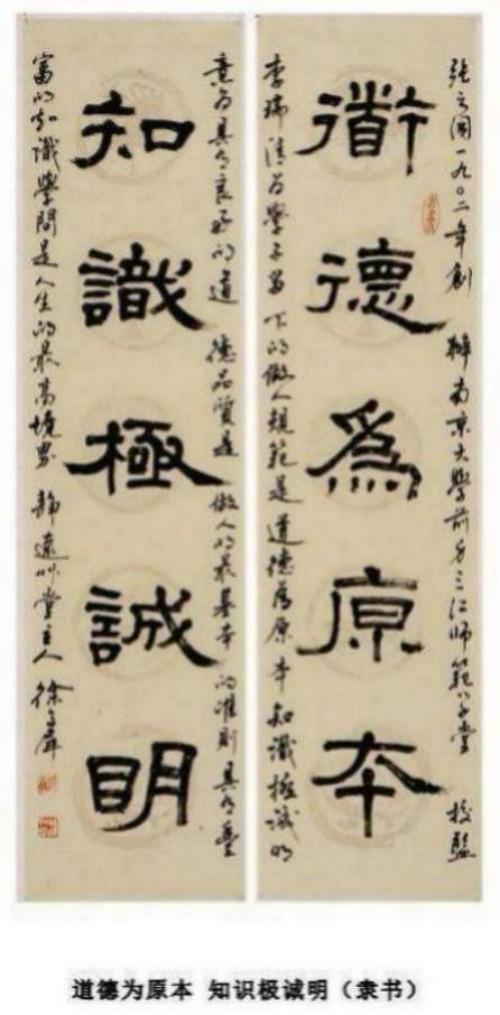 張之洞一九〇二年創 辦南京大學前身三江師範學堂 校監
衜德爲原本
李瑞清為學子留下的做人規範是道德為原本知識極誠明
意為具有良好的道 德品質是 做人的最基本 的准則 具有豐
知識極誠眀
富的知識學問是人生的最高境界 静遠艸堂主人 徐
道德为原本 知识极诚明（隶书）